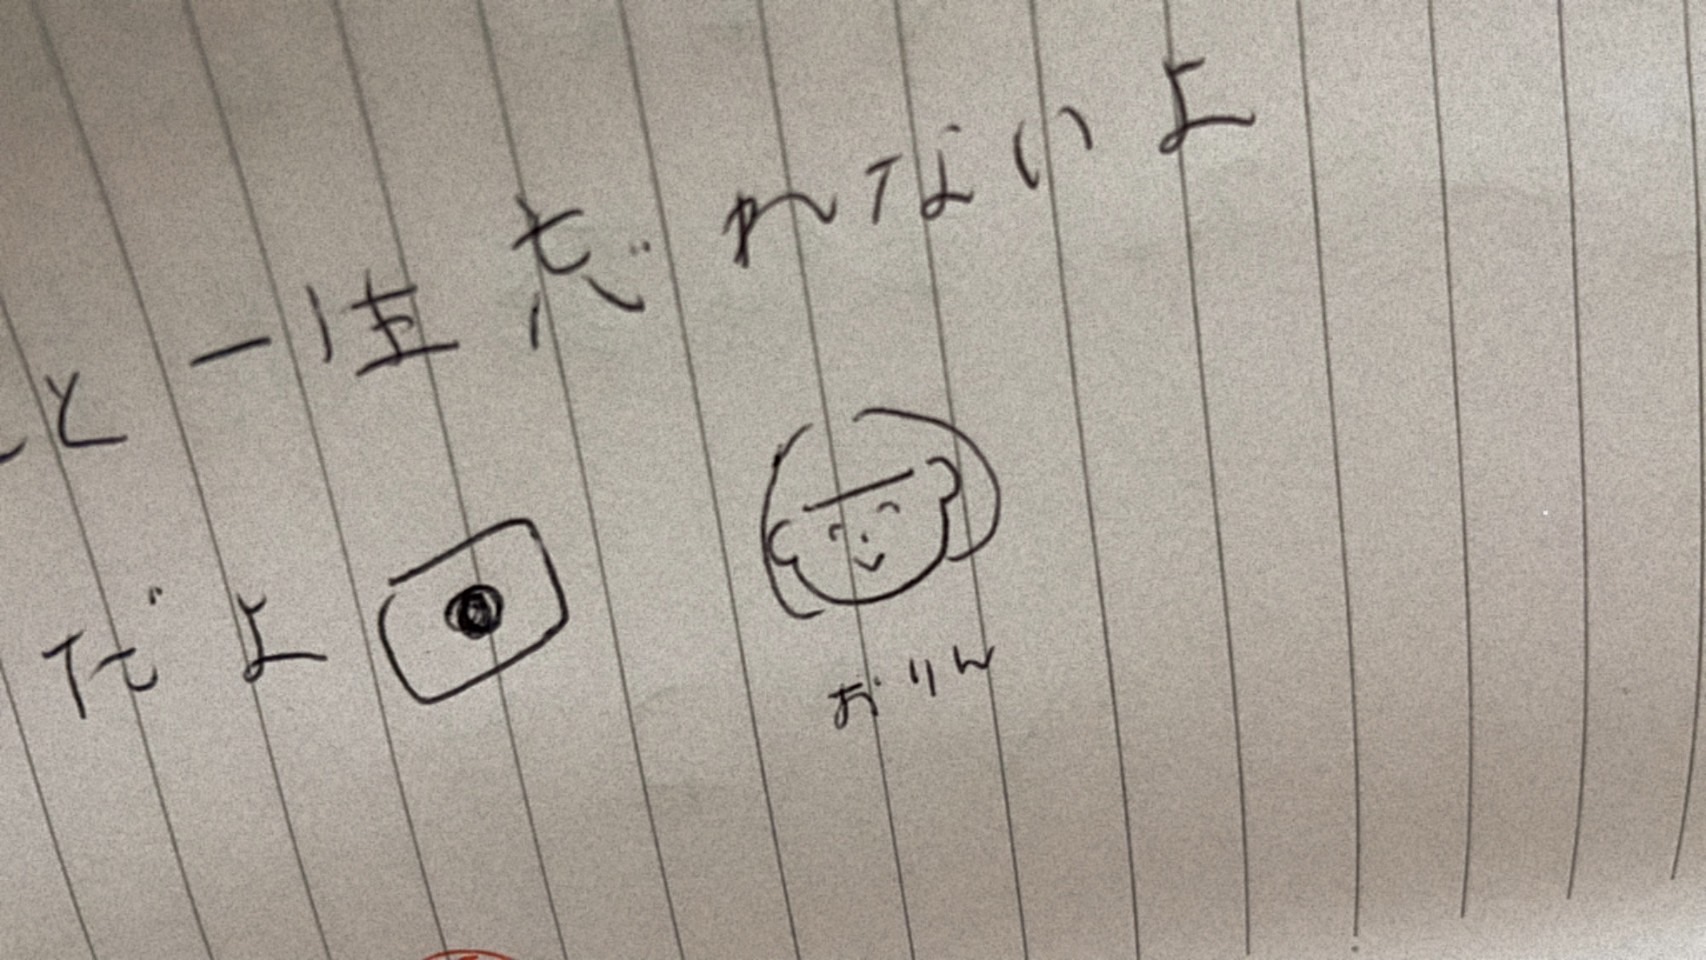 と一生忘れないよ
だよ
おりん